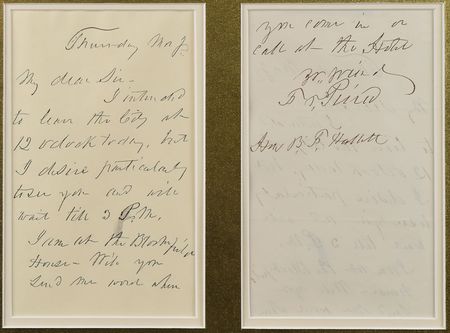 Thursday
My dear Sir -
I intended
to leave the City at
12 oclock today, but
I desire particularly
to see you and will
wait till 3 P.M.
I am at the
House - Will you
send me word when
you come in or
call at the Hotel
Yr. friend
Hon B. F. Hallett